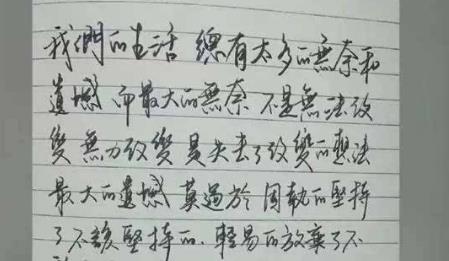 我們的生活 總有太多的無奈和
遺憾 而最大的無奈 不是無法改
變 無力改變 是失去了改變的想法
最大的遺憾 莫過於 固執的堅持
了不該堅持的、輕易的放棄了不